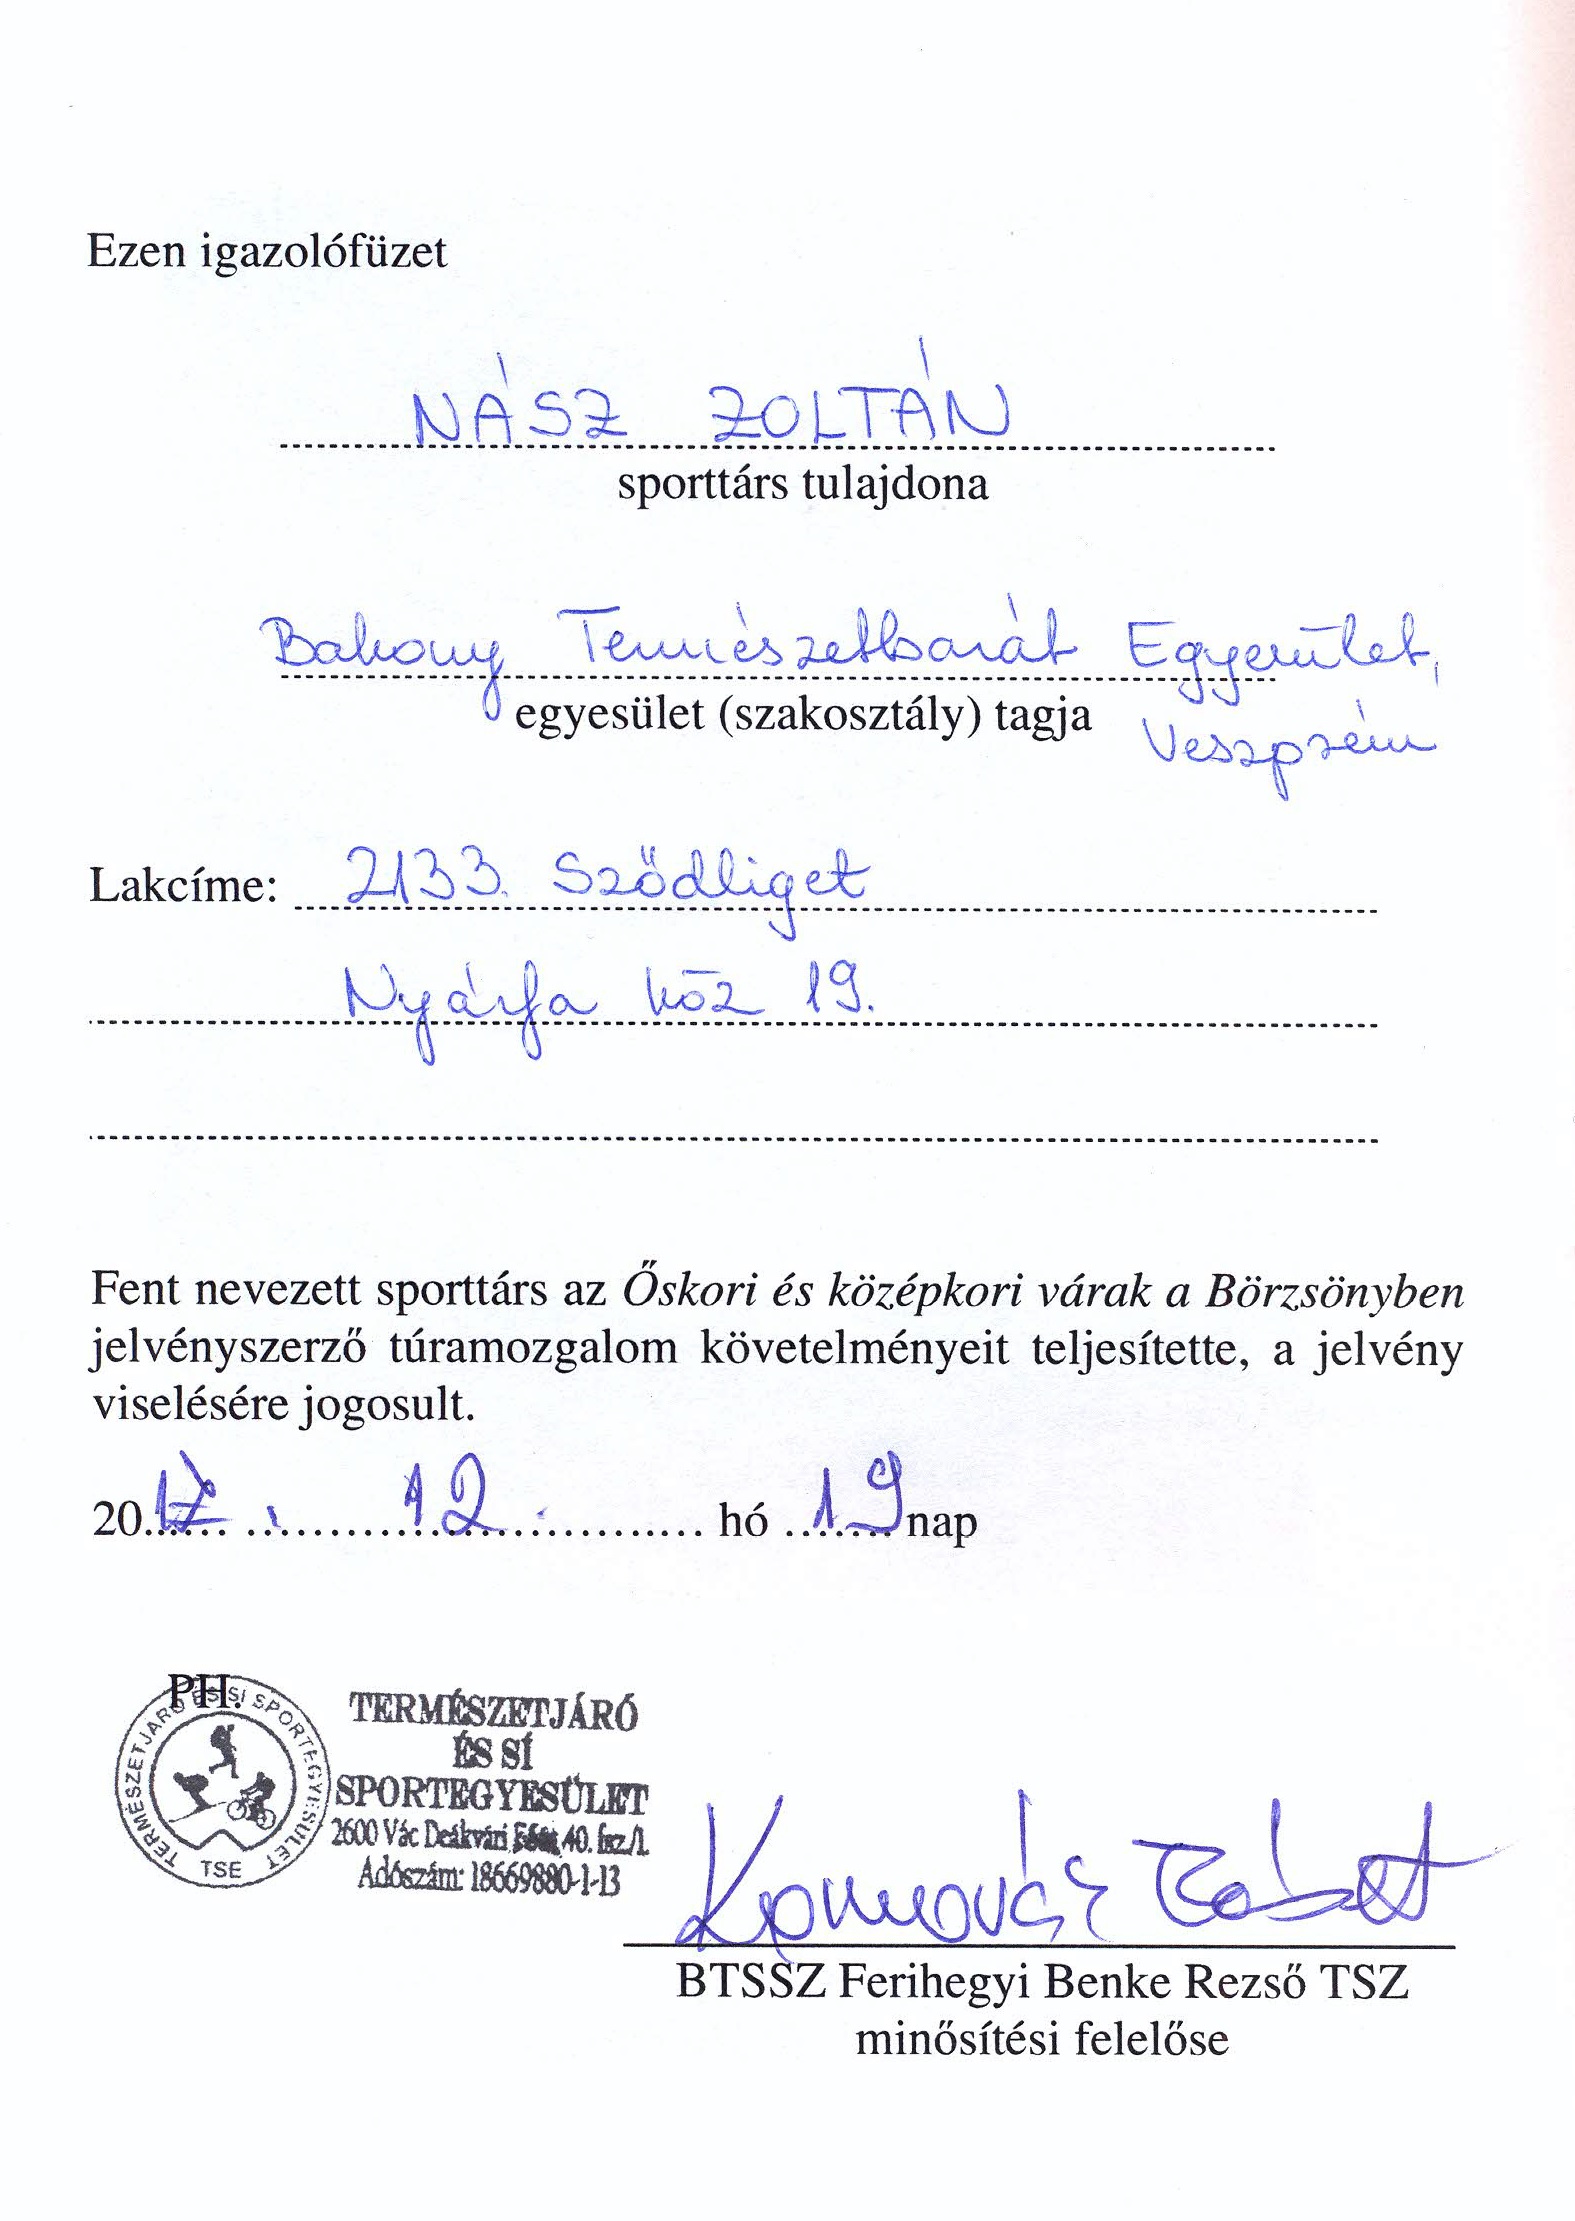 Ezen igazolófüzet
NÁSZ ZOLTÁN
sporttárs tulajdona
Bakony Természetbarát Egyesület,
egyesület (szakosztály) tagja
Veszprém
Lakcíme: 2133. Sződliget
Nyárfa köz 19.
Fent nevezett sporttárs az Őskori és középkori várak a Börzsönyben
jelvényszerző túramozgalom követelményeit teljesítette, a jelvény
viselésére jogosult.
2017. 12. hó 19 nap
PH.
TERMÉSZETJÁRÓ ÉS SÍ SPORTEGYESÜLET
TSE
TERMÉSZETJÁRÓ
ÉS SÍ
SPORTEGYESÜLET
2600 Vác Deákvári 40. fsz/1.
Adószám: 18669880-1-13
Róbert
BTSSZ Ferihegyi Benke Rezső TSZ
minősítési felelőse